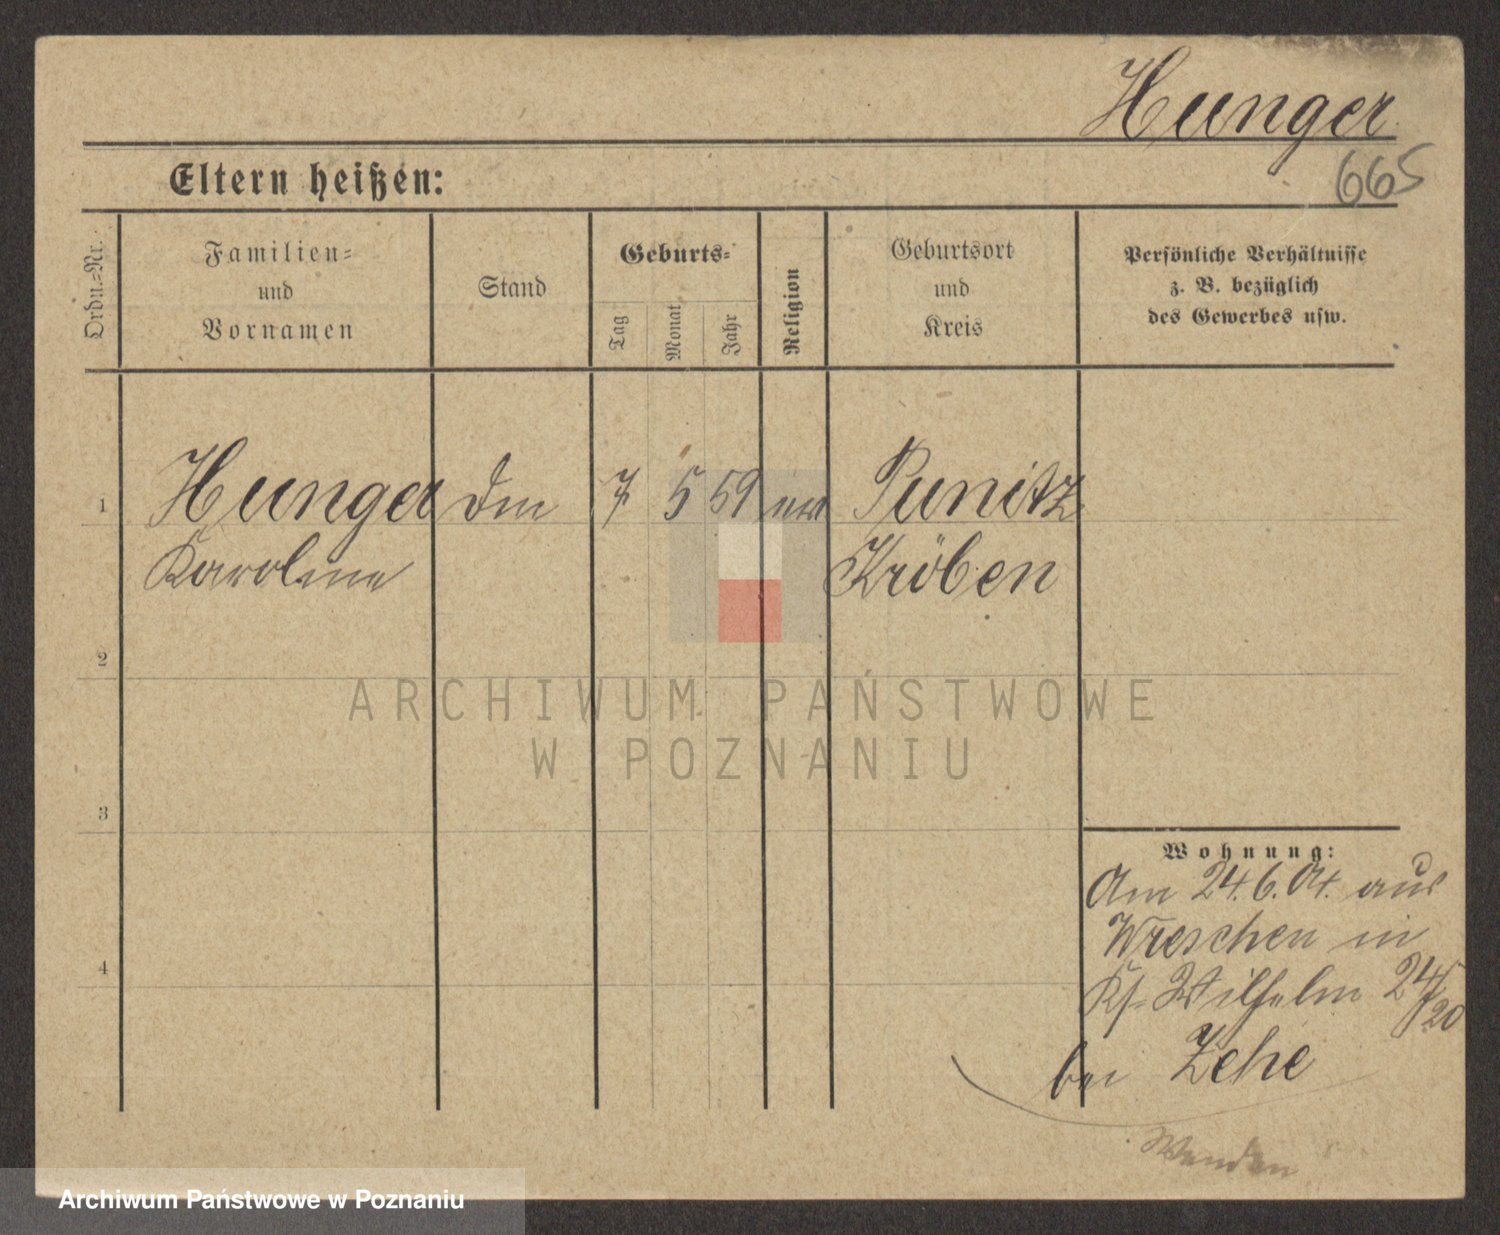 Hunger
665
Eltern heißen:
Ordn.-Nr.
Familien-
und
Vornamen
Stand
Geburts-
Tag
Monat
Jahr
Religion
Geburtsort
und
Kreis
Persönliche Verhältnisse
z. B. bezüglich
des Gewerbes usw.
1
Hunger 7 5 59 Punitz
Karoline Kröben
2
3
4
Wohnung:
Am 24.6.04. aus
Wreschen in
Ks. Wilhelm 24/20
bei Zehe
Wenden
ARCHIWUM PAŃSTWOWE
W POZNANIU
Archiwum Państwowe w Poznaniu